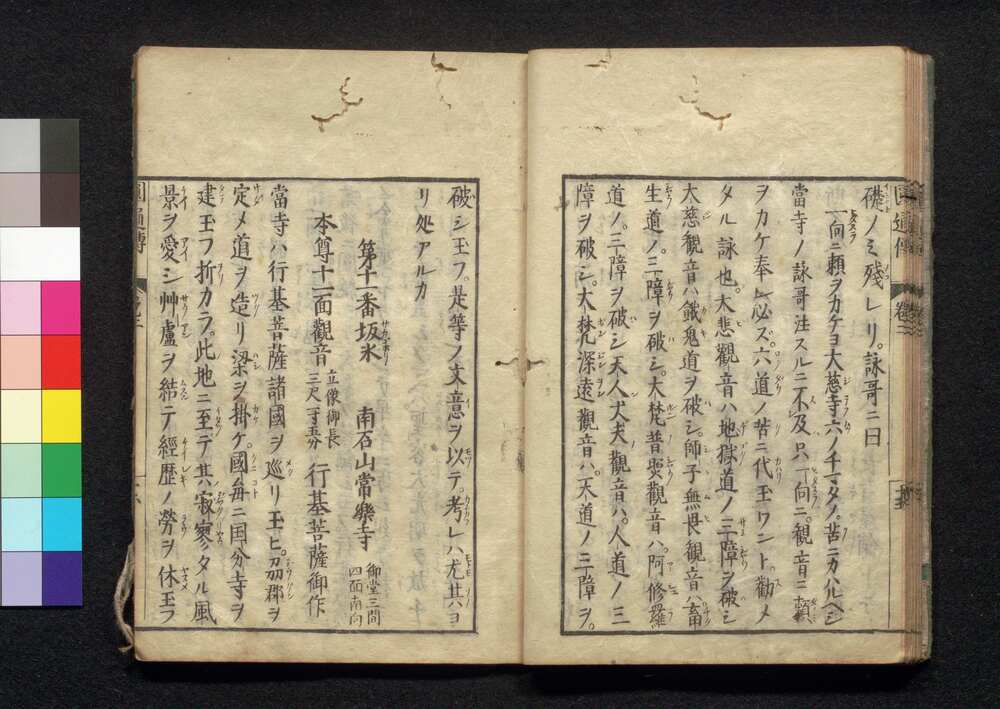 礎ノミ残レリ。詠哥ニ曰
一向ニ頼ヲカケヨ大慈寺六ノチマタノ。苦ニカハルヘシ
當寺ノ詠哥注スルニ不及只一向ニ。觀音ニ頼
ヲカケ奉レ必ズ。六道ノ苦ニ代玉ワント勸メ
タル詠也。大悲觀音ハ地獄道ノ三障ヲ破シ
大慈觀音ハ餓鬼道ヲ破シ。師子無畏觀音ハ畜
生道ノ。三障ヲ破シ。大梵普照觀音ハ。阿修羅
道ノ。三障ヲ破シ天人丈夫觀音ハ。人道ノ三
障ヲ破シ。大梵深遠觀音ハ。天道ノ三障ヲ。
破シ玉フ。是等ノ文意ヲ以テ。考レハ尤其ヨ
リ処アルカ
第十一番坂氷 南石山常樂寺 御堂三間 四面南向
本尊十一面觀音 立像御長 三尺二寸五分 行基菩薩御作
當寺ハ行基菩薩諸國ヲ巡リ玉ヒ。刕郡ヲ
定メ道ヲ造リ梁ヲ掛ケ。國毎ニ国分寺ヲ
建玉フ折カラ。此地ニ至テ其寂寥タル風
景ヲ愛シ艸盧ヲ結テ經歴ノ勞ヲ休玉フ